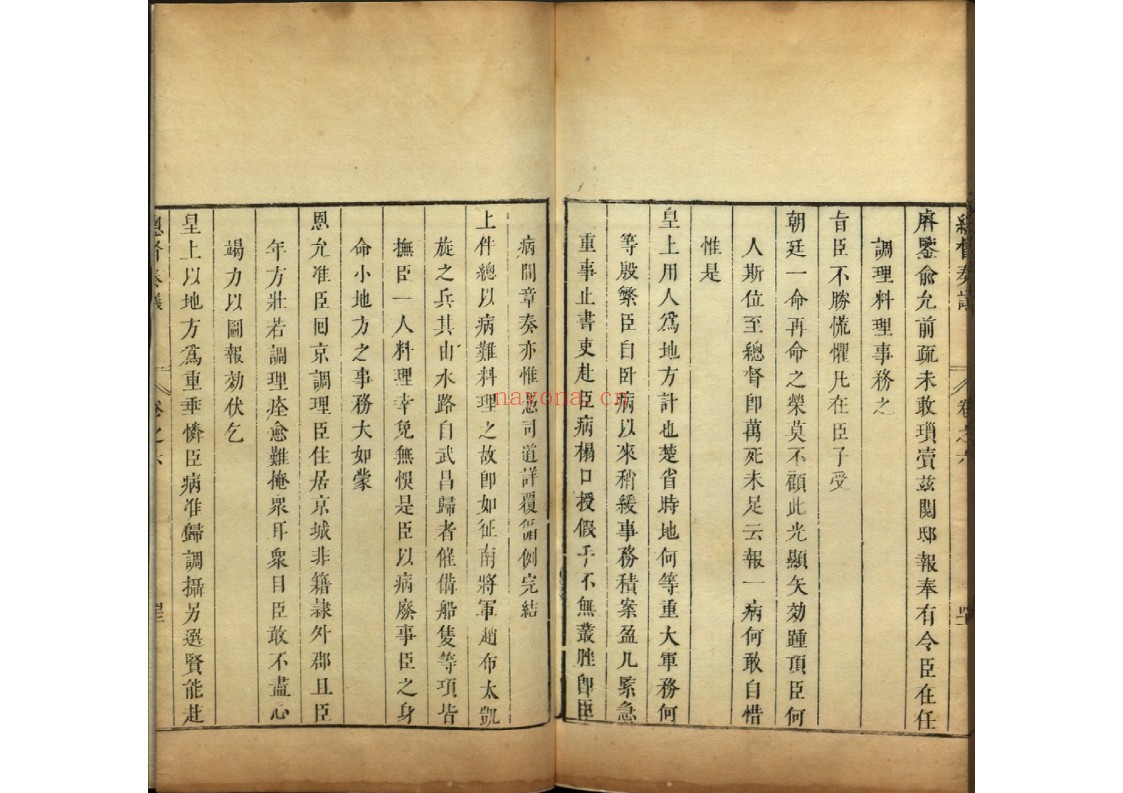 總督奏議 卷之六
睿鑒俞允前疏未敢瑣凟茲閱邸報奉有令臣在任
調理料理事務之
旨臣不勝慌懼凡在臣子受
朝廷一命再命之榮莫不願此光顯矢効踵頂臣何
人斯位至總督卽萬死未足云報一病何敢自惜
惟是
皇上用人為地方計也楚省時地何等重大軍務何
等殷繁臣自卧病以來稍緩事務積案盈几緊急
重事止書吏赴臣病榻口授假手不無叢脞卽臣
病間章奏亦惟慿司道詳覆循例完結
上件總以病難料理之故卽如征南將軍趙布太凱
旋之兵其由水路自武昌歸者催備船隻等項皆
撫臣一人料理幸免無悞是臣以病廢事臣之身
命小地方之事務大如蒙
恩允准臣回京調理臣住居京城非籍隷外郡且臣
年方壯若調理痊愈難掩衆耳衆目臣敢不盡心
竭力以圖報効伏乞
皇上以地方為重垂憐臣病准歸調攝另選賢能赴
總督奏議 卷之六
nayona.cn